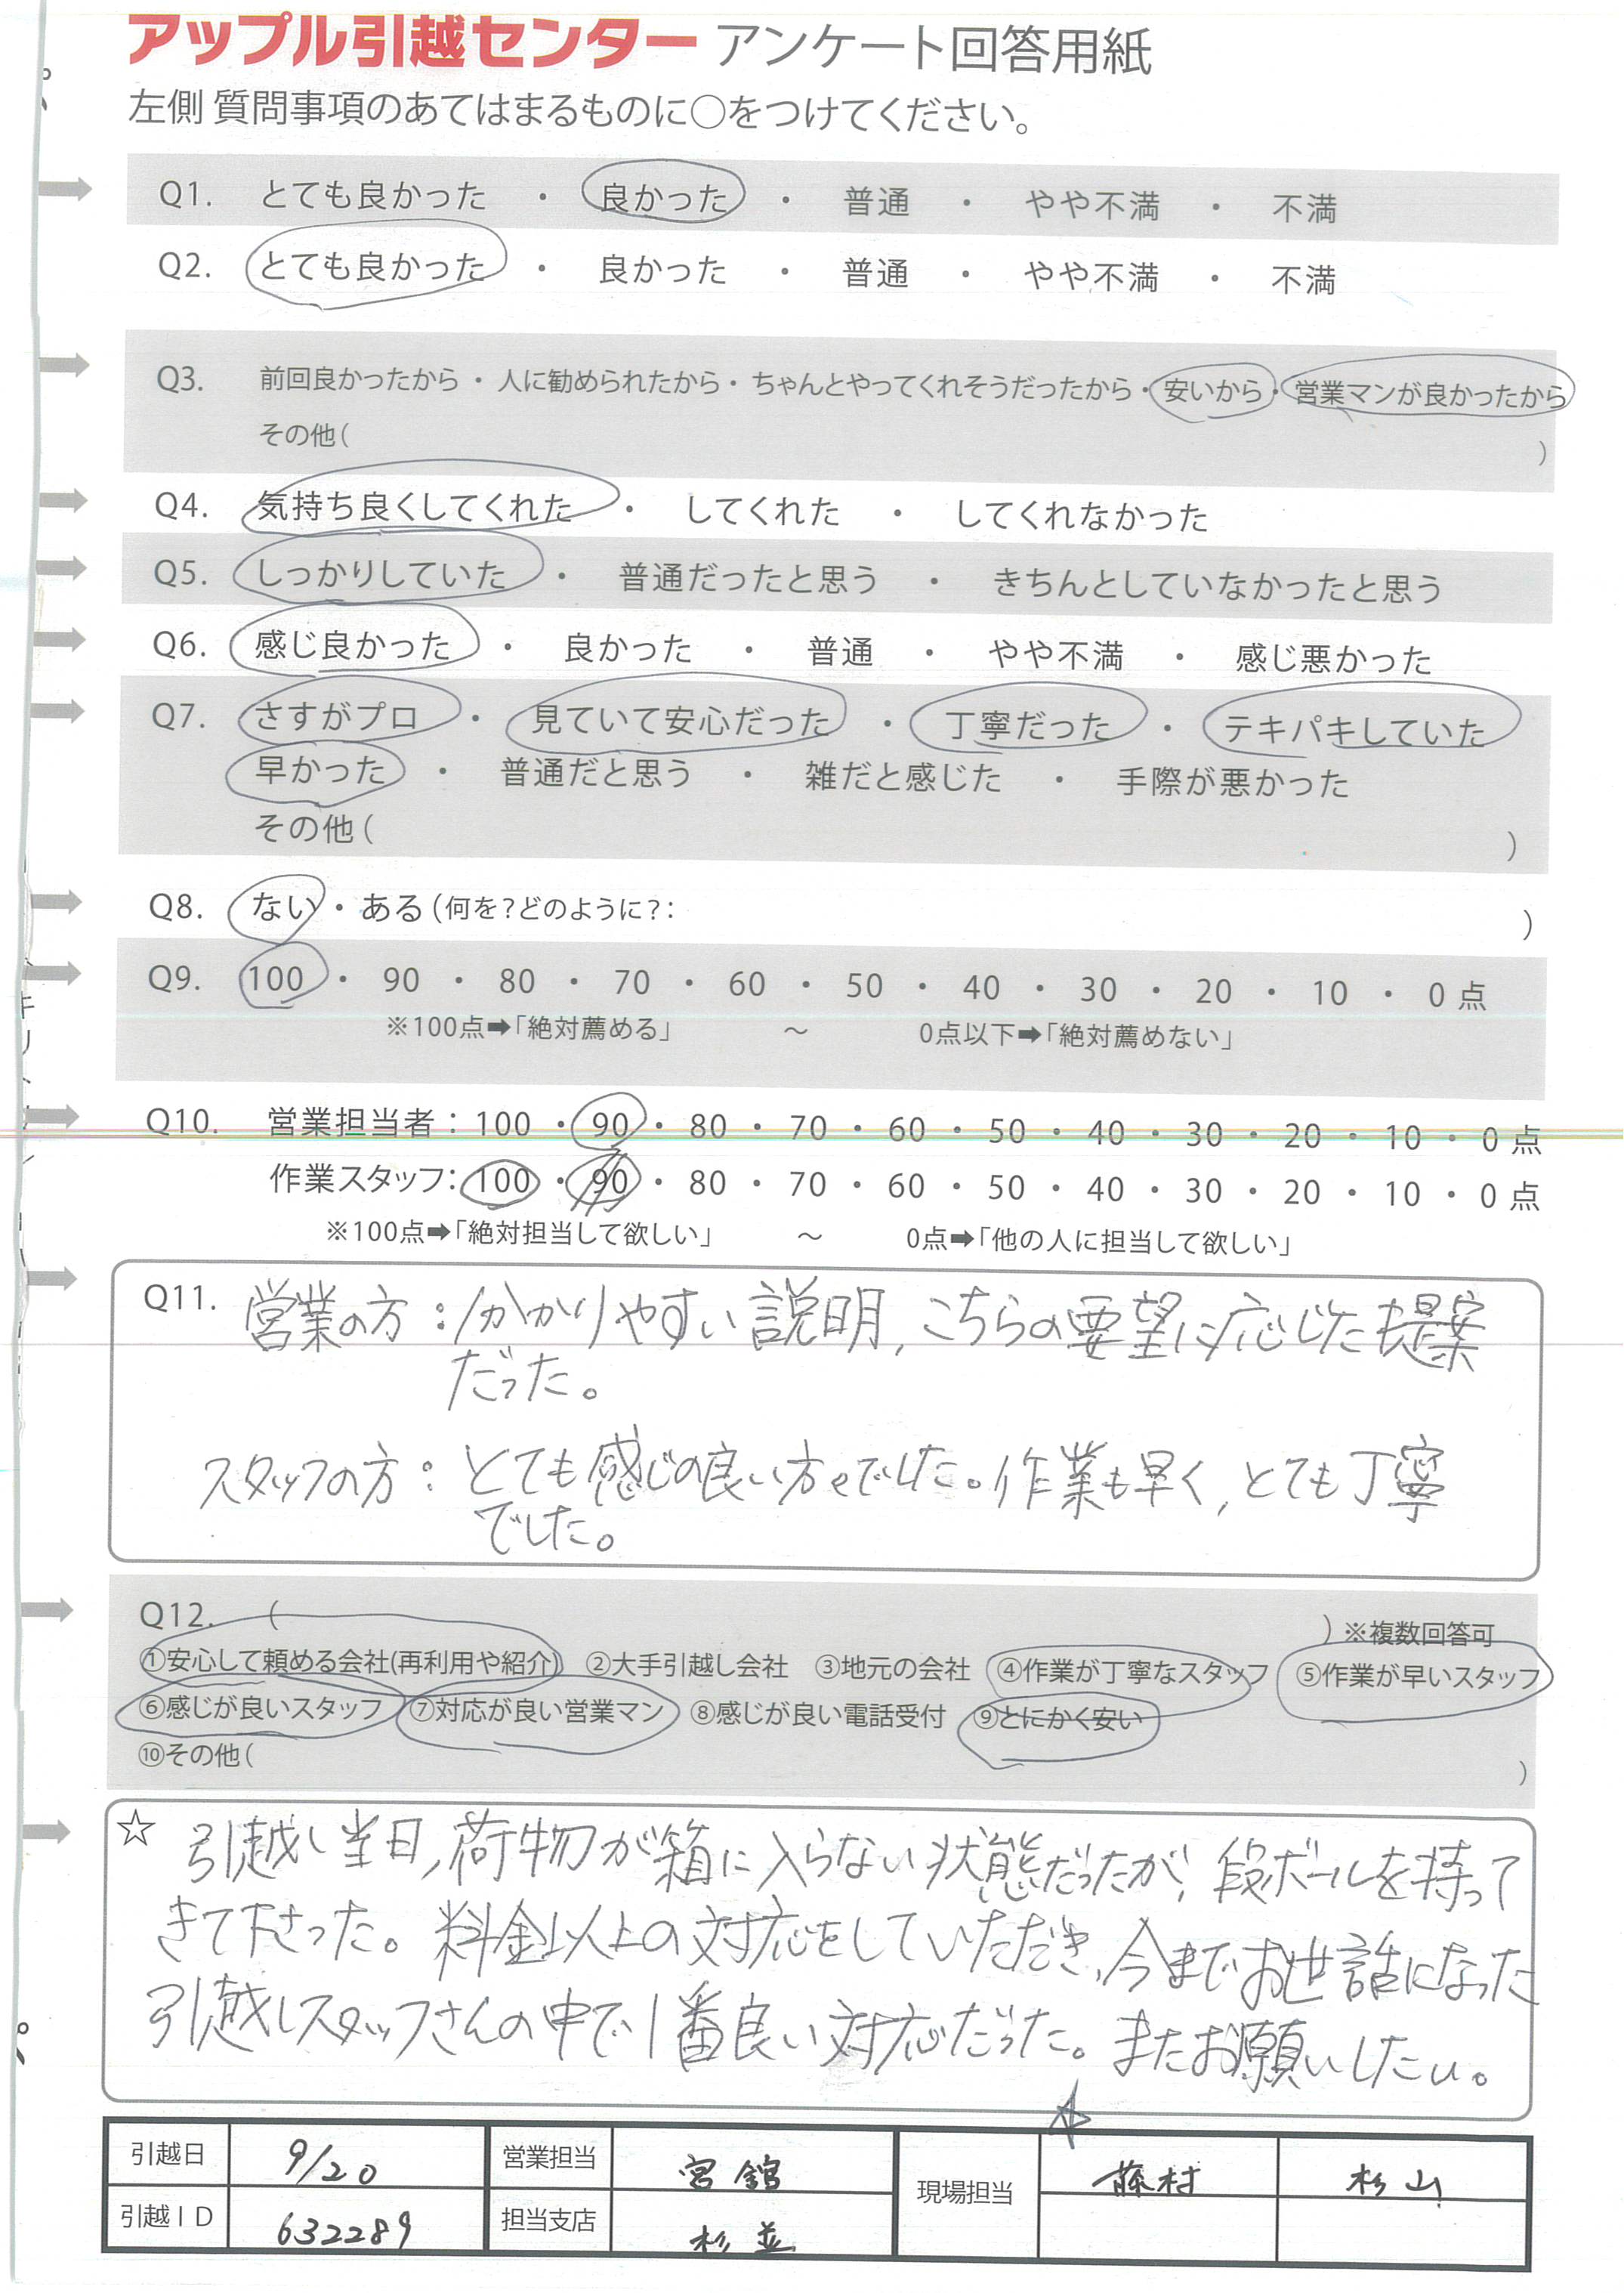 アップル引越センター アンケート回答用紙
左側 質問事項のあてはまるものに○をつけてください。
Q1. とても良かった ・ 良かった ・ 普通 ・ やや不満 ・ 不満
Q2. とても良かった ・ 良かった ・ 普通 ・ やや不満 ・ 不満
Q3. 前回良かったから・人に勧められたから・ちゃんとやってくれそうだったから・安いから・営業マンが良かったから
その他( )
Q4. 気持ち良くしてくれた ・ してくれた ・ してくれなかった
Q5. しっかりしていた ・ 普通だったと思う ・ きちんとしていなかったと思う
Q6. 感じ良かった ・ 良かった ・ 普通 ・ やや不満 ・ 感じ悪かった
Q7. さすがプロ ・ 見ていて安心だった ・ 丁寧だった ・ テキパキしていた
早かった ・ 普通だと思う ・ 雑だと感じた ・ 手際が悪かった
その他( )
Q8. ない・ある(何を?どのように?: )
Q9. 100 ・ 90 ・ 80 ・ 70 ・ 60 ・ 50 ・ 40 ・ 30 ・ 20 ・ 10 ・ 0点
※100点➡「絶対薦める」 ～ 0点以下➡「絶対薦めない」
Q10. 営業担当者:100 ・ 90 ・ 80 ・ 70 ・ 60 ・ 50 ・ 40 ・ 30 ・ 20 ・ 10 ・ 0点
作業スタッフ:100 ・ 90 ・ 80 ・ 70 ・ 60 ・ 50 ・ 40 ・ 30 ・ 20 ・ 10 ・ 0点
※100点➡「絶対担当して欲しい」 ～ 0点➡「他の人に担当して欲しい」
Q11. 営業の方:分かりやすい説明,こちらの要望に応じた提案
だった。
スタッフの方:とても感じの良い方々でした。作業も早く,とても丁寧
でした。
Q12. ( )※複数回答可
①安心して頼める会社(再利用や紹介) ②大手引越し会社 ③地元の会社 ④作業が丁寧なスタッフ ⑤作業が早いスタッフ
⑥感じが良いスタッフ ⑦対応が良い営業マン ⑧感じが良い電話受付 ⑨とにかく安い
⑩その他( )
☆ 引越し当日,荷物が箱に入らない状態だったが,段ボールを持って
きて下さった。料金以上の対応をしていただき,今までお世話になった
引越しスタッフさんの中で1番良い対応だった。またお願いしたい。
引越日 9/20 営業担当 宮舘 現場担当 藤村 杉山
引越ID 632289 担当支店 杉並